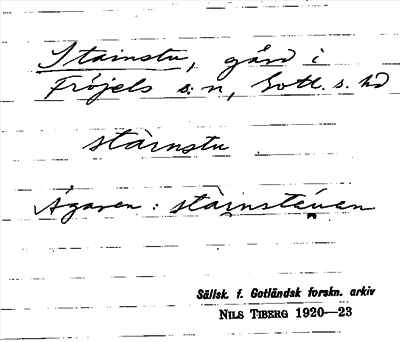 Stainstu, gård i
Fröjels s:n, Gotl. s. hd
stàinstu
Ägaren : stàinstúen
Sällsk. f. Gotländsk forskn. arkiv
NILS TIBERG 1920—23